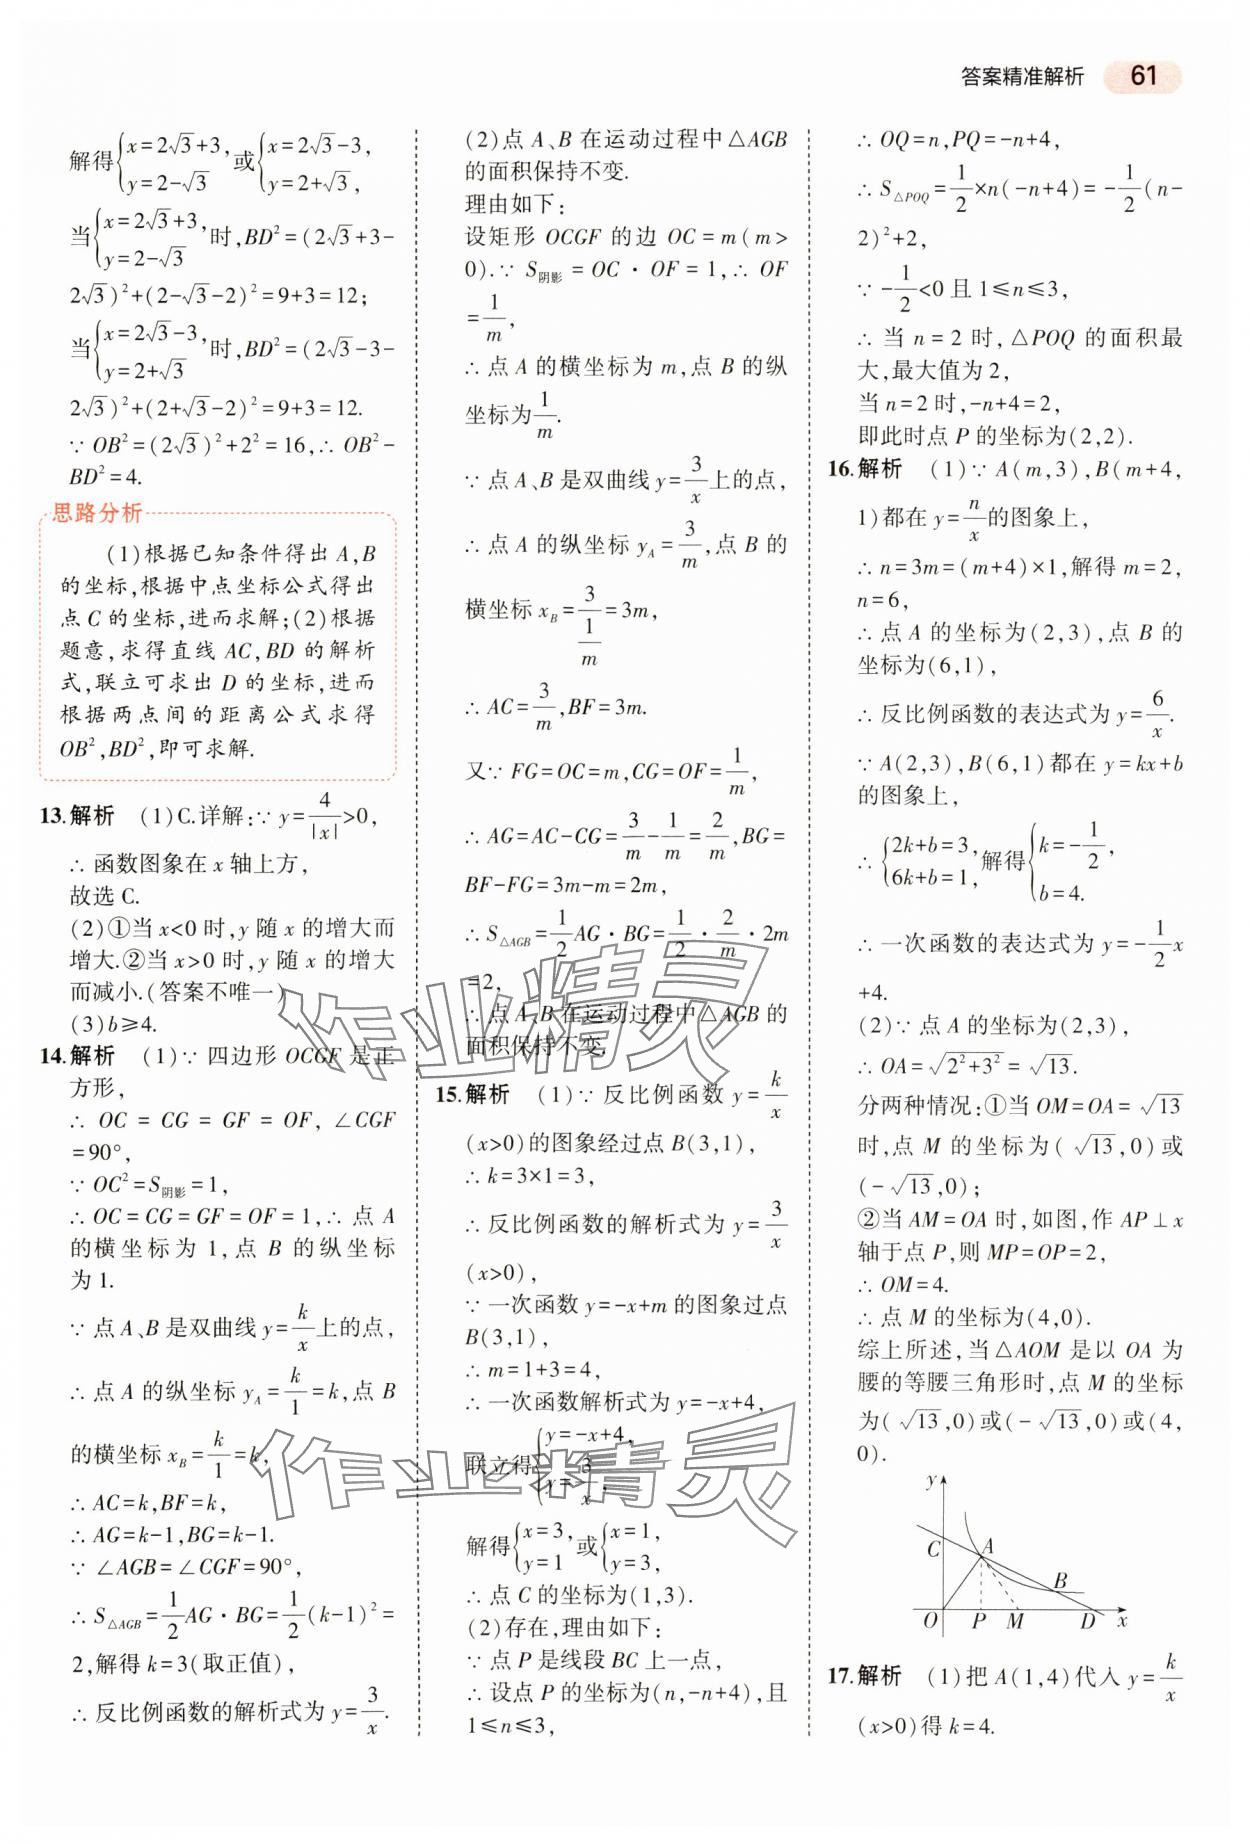 答案精准解析 61
解得{x=2√3+3, y=2-√3 或{x=2√3-3, y=2+√3,
当{x=2√3+3, y=2-√3 时,BD²=(2√3+3-
2√3)²+(2-√3-2)²=9+3=12;
当{x=2√3-3, y=2+√3 时,BD²=(2√3-3-
2√3)²+(2+√3-2)²=9+3=12.
∵OB²=(2√3)²+2²=16,∴OB²-
BD²=4.
思路分析
(1)根据已知条件得出A,B
的坐标,根据中点坐标公式得出
点C的坐标,进而求解;(2)根据
题意,求得直线AC,BD的解析
式,联立可求出D的坐标,进而
根据两点间的距离公式求得
OB²,BD²,即可求解.
13.解析 (1)C.详解:∵y=4/|x|>0,
∴函数图象在x轴上方,
故选C.
(2)①当x<0时,y随x的增大而
增大.②当x>0时,y随x的增大
而减小.(答案不唯一)
(3)b≥4.
14.解析 (1)∵四边形OCGF是正
方形,
∴OC=CG=GF=OF,∠CGF
=90°,
∵OC²=S阴影=1,
∴OC=CG=GF=OF=1,∴点A
的横坐标为1,点B的纵坐标
为1.
∵点A、B是双曲线y=k/x上的点,
∴点A的纵坐标y_A=k/1=k,点B
的横坐标x_B=k/1=k,
∴AC=k,BF=k,
∴AG=k-1,BG=k-1.
∵∠AGB=∠CGF=90°,
∴S△AGB=1/2AG·BG=1/2(k-1)²=
2,解得k=3(取正值),
∴反比例函数的解析式为y=3/x.
(2)点A、B在运动过程中△AGB
的面积保持不变.
理由如下:
设矩形OCGF的边OC=m(m>
0).∵S阴影=OC·OF=1,∴OF
=1/m,
∴点A的横坐标为m,点B的纵
坐标为1/m.
∵点A、B是双曲线y=3/x上的点,
∴点A的纵坐标y_A=3/m,点B的
横坐标x_B=3/(1/m)=3m,
∴AC=3/m,BF=3m.
又∵FG=OC=m,CG=OF=1/m,
∴AG=AC-CG=3/m-1/m=2/m,BG=
BF-FG=3m-m=2m,
∴S△AGB=1/2AG·BG=1/2·2/m·2m
=2,
∴点A、B在运动过程中△AGB的
面积保持不变.
15.解析 (1)∵反比例函数y=k/x
(x>0)的图象经过点B(3,1),
∴k=3×1=3,
∴反比例函数的解析式为y=3/x
(x>0),
∵一次函数y=-x+m的图象过点
B(3,1),
∴m=1+3=4,
∴一次函数解析式为y=-x+4,
联立得{y=-x+4, y=3/x,
解得{x=3, y=1 或{x=1, y=3,
∴点C的坐标为(1,3).
(2)存在,理由如下:
∵点P是线段BC上一点,
∴设点P的坐标为(n,-n+4),且
1≤n≤3,
∴OQ=n,PQ=-n+4,
∴S△POQ=1/2×n(-n+4)=-1/2(n-
2)²+2,
∵-1/2<0且1≤n≤3,
∴当n=2时,△POQ的面积最
大,最大值为2,
当n=2时,-n+4=2,
即此时点P的坐标为(2,2).
16.解析 (1)∵A(m,3),B(m+4,
1)都在y=n/x的图象上,
∴n=3m=(m+4)×1,解得m=2,
n=6,
∴点A的坐标为(2,3),点B的
坐标为(6,1),
∴反比例函数的表达式为y=6/x.
∵A(2,3),B(6,1)都在y=kx+b
的图象上,
∴{2k+b=3, 6k+b=1, 解得{k=-1/2, b=4.
∴一次函数的表达式为y=-1/2x
+4.
(2)∵点A的坐标为(2,3),
∴OA=√(2²+3²)=√13.
分两种情况:①当OM=OA=√13
时,点M的坐标为(√13,0)或
(-√13,0);
②当AM=OA时,如图,作AP⊥x
轴于点P,则MP=OP=2,
∴OM=4.
∴点M的坐标为(4,0).
综上所述,当△AOM是以OA为
腰的等腰三角形时,点M的坐标
为(√13,0)或(-√13,0)或(4,
0).
y
C A
B
O P M D x
17.解析 (1)把A(1,4)代入y=k/x
(x>0)得k=4.
作业精灵
作业精灵